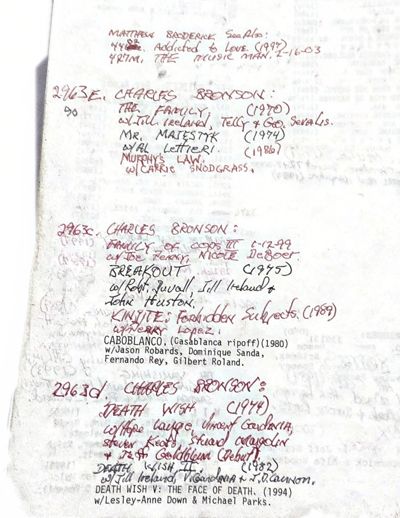 MATTHEW BRODERICK See Also:
Addicted to Love. (1997)
427M. THE MUSIC MAN. 2-16-03
2963E. CHARLES BRONSON:
90 THE FAMILY, (1970)
w/Jill Ireland, Telly & Geo. Savalas.
MR. MAJESTYK (1974)
w/AL LETTIERI.
MURPHY'S LAW. (1986)
w/CARRIE SNODGRASS.
2963c. CHARLES BRONSON:
FAMILY OF COPS III 6-12-99
w/Joe Penny, NICOLE DeBOER.
BREAKOUT (1975)
w/Robt. Duvall, Jill Ireland &
John Huston.
KINJITE: Forbidden Subjects. (1989)
w/Perry Lopez.
CABOBLANCO. (Casablanca ripoff)(1980)
w/Jason Robards, Dominique Sanda,
Fernando Rey, Gilbert Roland.
2963d. CHARLES BRONSON:
DEATH WISH (1974)
w/Hope Lange, Vincent Gardenia,
Steven Keats, Stuart Margolin
& Jeff Goldblum (Debut).
DEATH WISH II. (1982)
w/Jill Ireland, V. Gardenia & J.D. Cannon.
DEATH WISH V: THE FACE OF DEATH. (1994)
w/Lesley-Anne Down & Michael Parks.